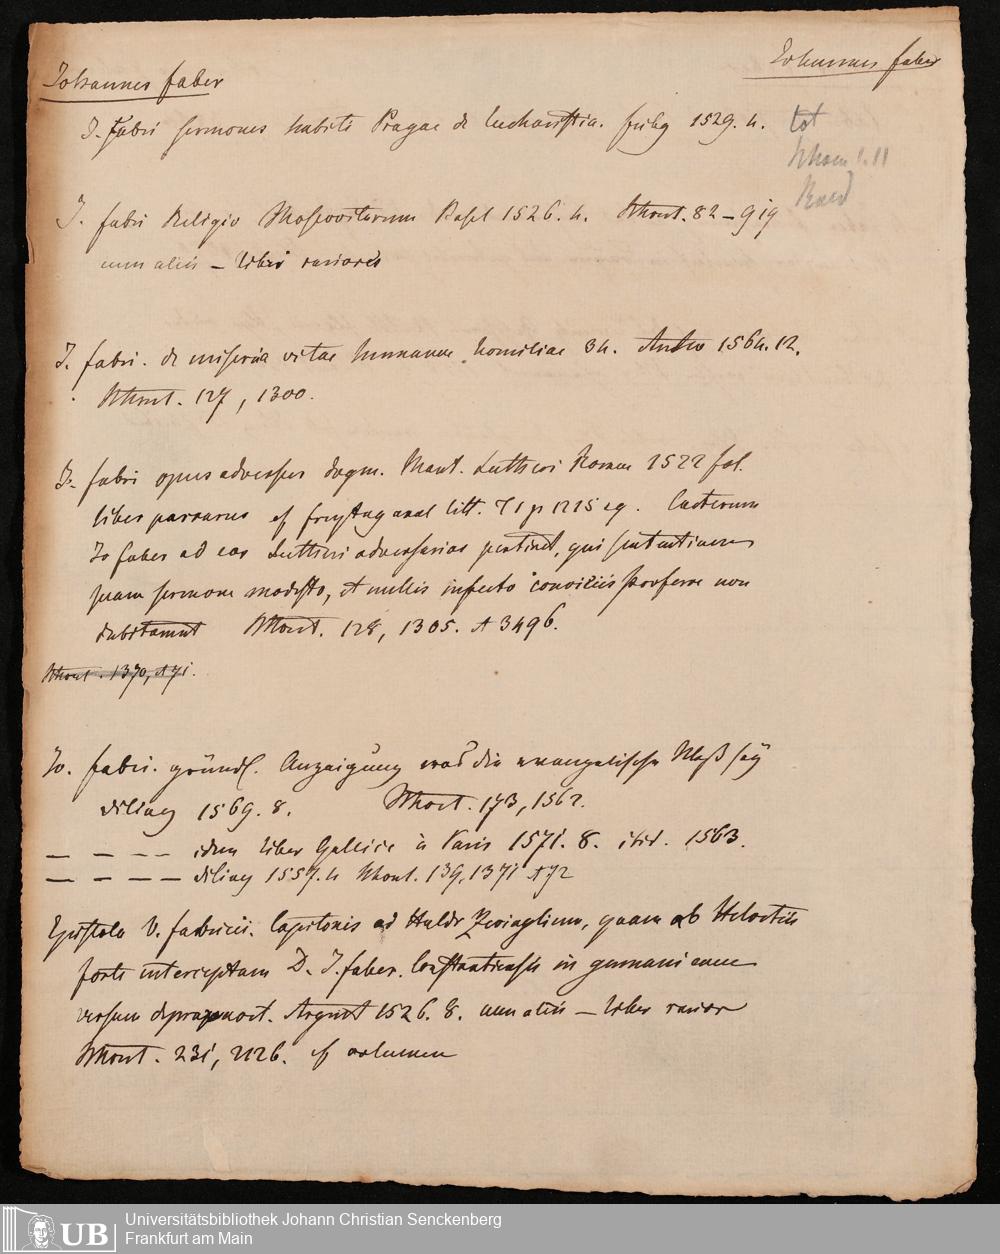 Johannes Faber
Johannes Faber
J. Fabri sermones habiti Pragae de Eucharistia. Fribg 1529. 4.
tot
J. Fabri Religio Moscovitarum Basel 1526. 4. 82 – 919
cum aliis – Liber rarioris
J. Fabri. de miseria vitae humanae homiliae 34. 1564. 12.
127, 1300.
J. Fabri opus adversus dogm. Mart. Lutheri Romae 1522 fol.
liber rarus cf Freytag anal litt. p Caeterum
Jo Faber ad eos Lutheri adversarios pertinet, qui sententiam
suam sermone modesto, et nullis infecto conviciis proferre non
dubitarunt 128, 1305. et 3496.
1370, et 71.
Jo. Fabri. gründl. Anzaigung was die evangelische Meß sey
Diling 1569. 8. 173, 1562.
– – – – idem liber Gallice à Paris 1571. 8. ibid. 1563.
– – – – Diling 1557. 4 139, 1371 et 72
Epistola V. Fabricii. Capitonis ad Huldr Zwinglium, quam ab Helvetiis
forte interceptam D. J. Faber. Constantiensis in germanicum
versam depravavit. Argent 1526. 8. cum aliis – liber rarior
231, 2126. cf volumen
UB
Universitätsbibliothek Johann Christian Senckenberg
Frankfurt am Main